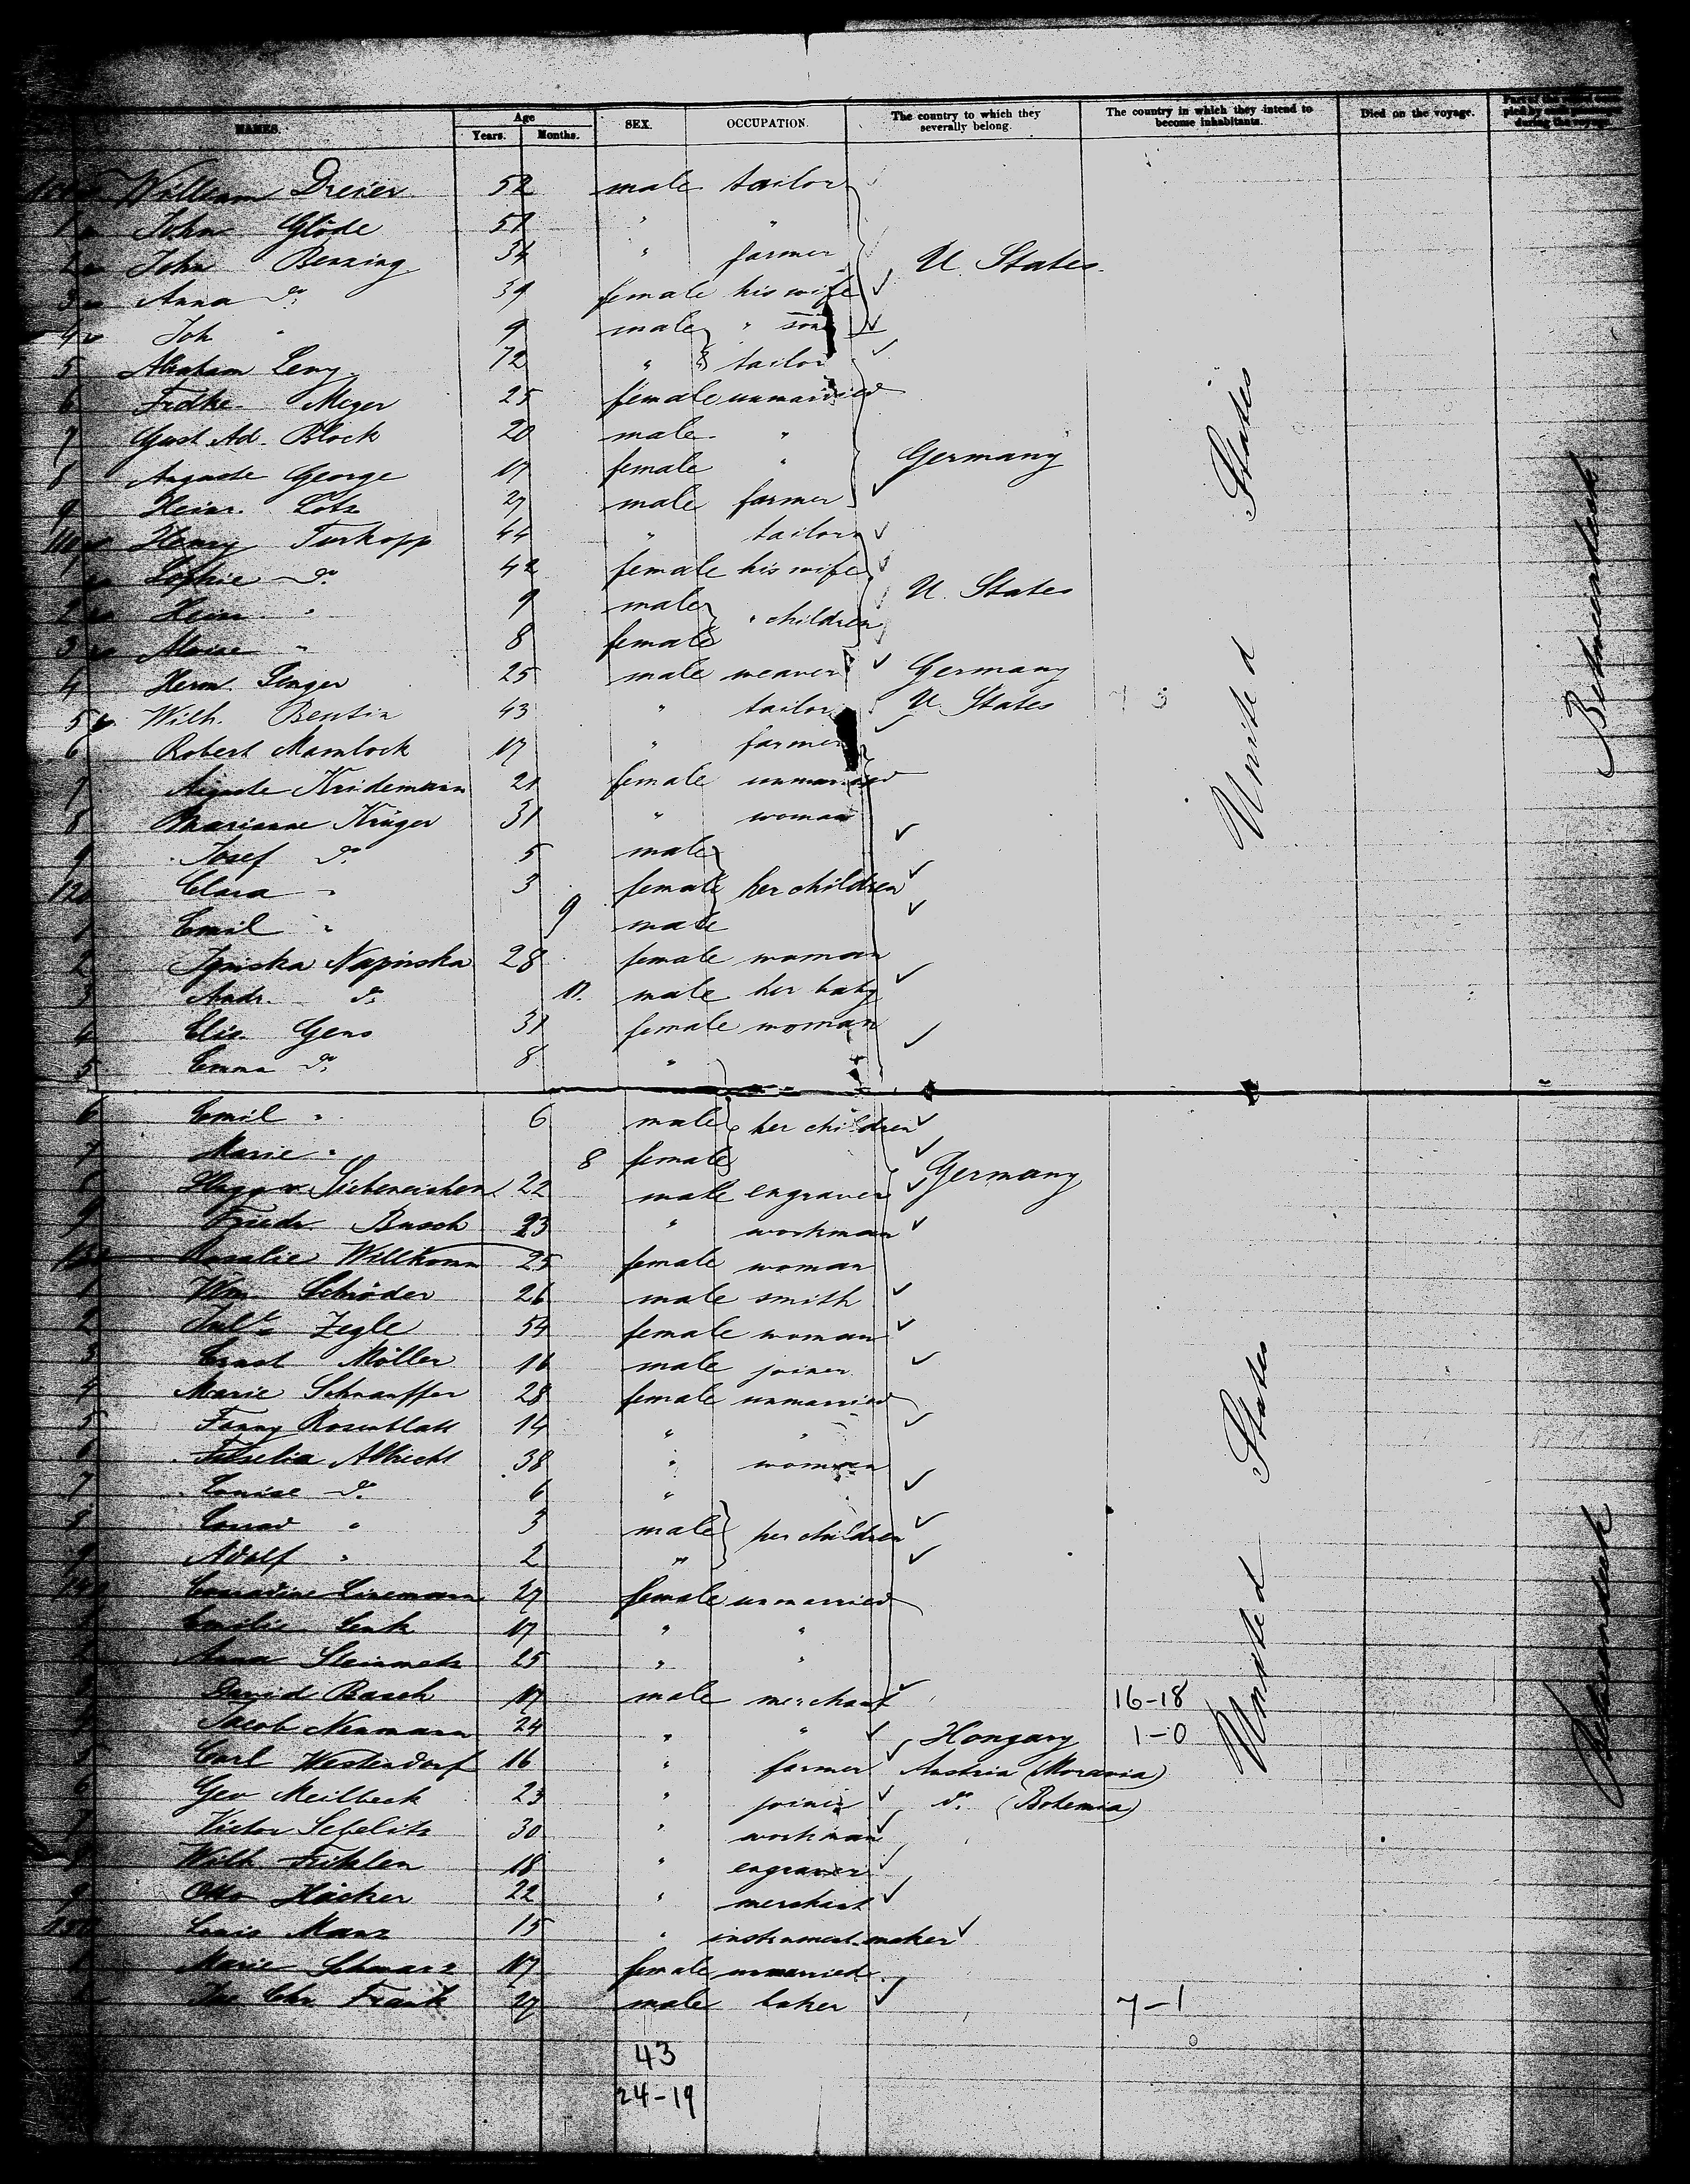 NAMES. Age Years. Months. SEX. OCCUPATION. The country to which they severally belong. The country in which they intend to become inhabitants. Died on the voyage. during the voyage.
William Dreier 52 male tailor
1 John Glöde 51 " "
2 John Benning 34 " farmer U. States
3 Anna do 39 female his wife
4 Joh " 9 male " son
5 Abraham Levy 72 " tailor
6 Fredke Meyer 25 female unmarried
7 Gust. Ad. Block 20 male "
8 Auguste George 17 female " Germany
9 Heinr. Lotz 27 male farmer
110 Henry Turkopp 44 " tailor
1 Sophie do 42 female his wife
2 Heinr. " 9 male " children U. States
3 " 8 female
4 Herm. Senger 25 male weaver Germany
5 Wilh. Bentin 43 " tailor U. States
6 Robert Mamlock 17 " farmer
7 Auguste Kridemann 21 female unmarried
8 Marianne Krüger 31 " woman
9 Josef do 5 male
120 Clara " 3 female her children
1 Emil " 9 male
2 Napinska 28 female woman
3 Andr. do 11 male her baby
4 Elis. Gens 31 female woman
5 Emma do 8 "
6 Emil " 6 male her children
7 Marie " 8 female
8 22 male engraver Germany
9 Friedr. Busch 23 " workman
130 Rosalie Willkomm 25 female woman
1 Wm. Schröder 26 male smith
2 Zegle 54 female woman
3 Ernst Möller 16 male joiner
4 Marie Schnauffer 28 female unmarried
5 Fanny Rosenblatt 14 " "
6 Albrecht 38 " woman
7 Louise do 6 "
8 Conrad " 3 male her children
9 Adolf " 2 "
140 Conradine Linemann 27 female unmarried
1 Emilie Senk 17 " "
2 Anna Steinmetz 25 " "
3 David Basch 17 male merchant 16-18
4 Jacob Neumann 24 " " Hongary 1-0
5 Carl Westendorf 16 " farmer Austria (Moravia)
6 Geo Meilbeck 23 " joiner do (Bohemia)
7 Victor 30 " workman
8 Wilh. 18 " engraver
9 Otto Häcker 22 " merchant
150 Louis Manz 15 " instrument-maker
1 Marie Schwarz 17 female unmarried
2 Chr. Frank 27 male baker 7-1
43
24-19
United States
United States